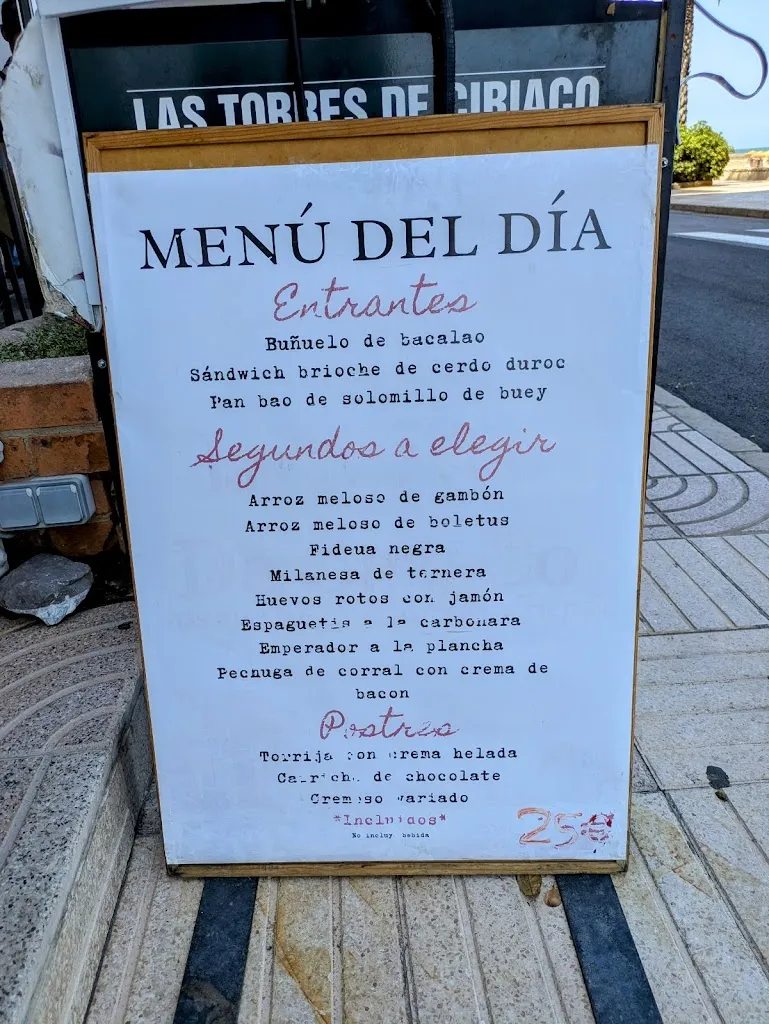 LAS TORRES DE CIRIACO
MENÚ DEL DÍA
Entrantes
Buñuelo de bacalao
Sándwich brioche de cerdo duroc
Pan bao de solomillo de buey
Segundos a elegir
Arroz meloso de gambón
Arroz meloso de boletus
Fideua negra
Milanesa de ternera
Huevos rotos con jamón
Espaguetis a la carbonara
Emperador a la plancha
Pechuga de corral con crema de
bacon
Postres
Torrija con crema helada
de chocolate
Cremoso variado
*Incluidos*
No incluye bebida
25€